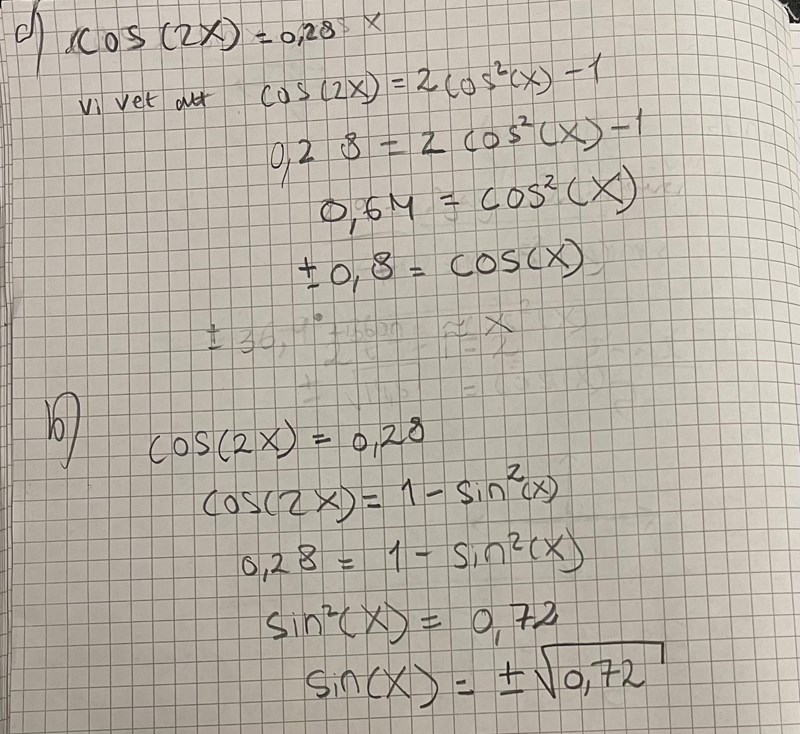 c) cos (2x) = 0,28 x
vi vet att cos(2x) = 2cos²(x) - 1
0,28 = 2 cos²(x) - 1
0,64 = cos²(x)
± 0,8 = cos(x)
± 36, ° ≈ x
b) cos(2x) = 0,28
cos(2x) = 1 - sin²(x)
0,28 = 1 - sin²(x)
sin²(x) = 0,72
sin(x) = ±√0,72